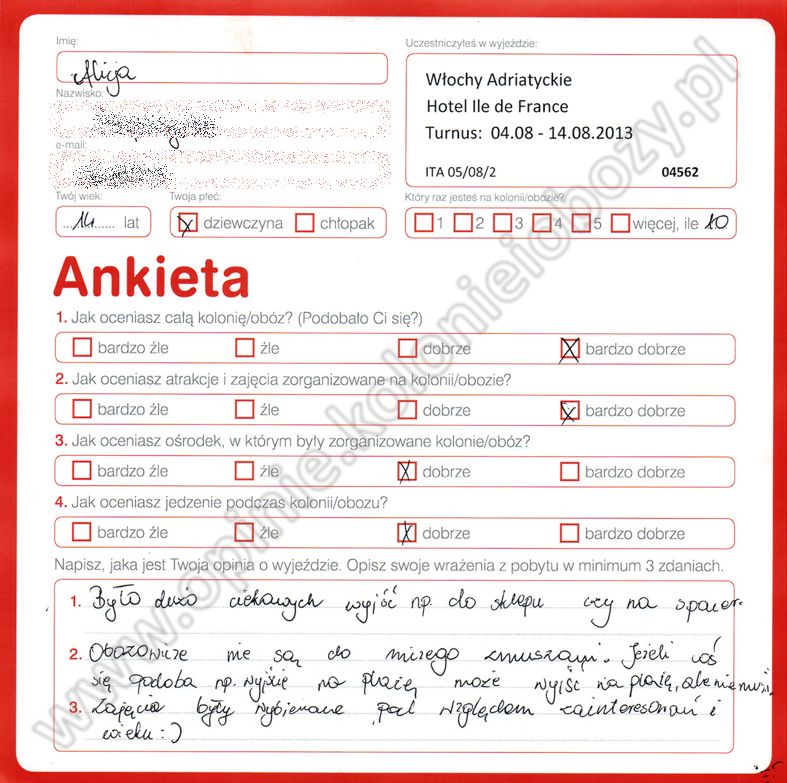 Imię:
Alicja
Nazwisko:
e-mail:
Twój wiek:
...14...... lat
Twoja płeć:
X dziewczyna chłopak
Uczestniczyłeś w wyjeździe:
Włochy Adriatyckie
Hotel Ile de France
Turnus: 04.08 - 14.08.2013
ITA 05/08/2 04562
Który raz jesteś na kolonii/obozie?
1 2 3 4 5 więcej, ile 10
Ankieta
1. Jak oceniasz całą kolonię/obóz? (Podobało Ci się?)
bardzo źle źle dobrze X bardzo dobrze
2. Jak oceniasz atrakcje i zajęcia zorganizowane na kolonii/obozie?
bardzo źle źle dobrze X bardzo dobrze
3. Jak oceniasz ośrodek, w którym były zorganizowane kolonie/obóz?
bardzo źle źle X dobrze bardzo dobrze
4. Jak oceniasz jedzenie podczas kolonii/obozu?
bardzo źle źle X dobrze bardzo dobrze
Napisz, jaka jest Twoja opinia o wyjeździe. Opisz swoje wrażenia z pobytu w minimum 3 zdaniach.
1. Było dużo ciekawych wyjść np. do sklepu czy na spacer.
2. Obozowicze nie są do niczego zmuszani. Jeżeli coś
się podoba np. wyjście na plażę może wyjść na plażę, ale nie musi.
3. Zajęcia były wybierane pod względem zainteresowań i
wieku :)
www.opinie.kolonieiobozy.pl